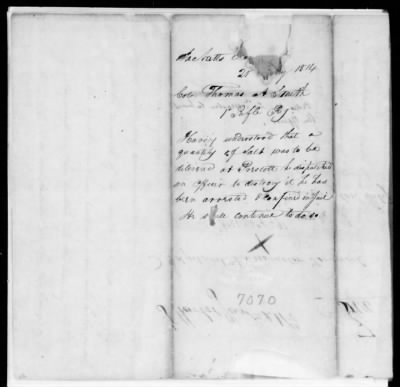 Sacketts
20 1814
Col Thomas A Smith
1 Rifle Rg
Having understood that a
quantity of Salt was to be
delivered at Prescott he dispatched
an Officer to destroy it he has
been arrested & confined in jail
He still continue to do so
X
7070